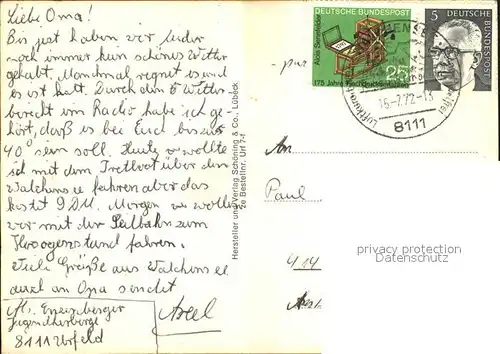 Liebe Oma!
Bis jest haben wir leider
noch immer kein schönes Wetter
gehabt. Manchmal regnet es und
es ist kalt. Durch den Wetter-
bericht im Radio habe ich ge-
hört, daß es bei Euch bis zu
40° sein soll. Heute wollte
ich mit dem Tretboot über den
Walchensee fahren aber das
kostet 9 DM. Morgen wollen
wir mit der Seilbahn zum
Herzogenstand fahren.
Viele Grüße aus Walchensee
auch an Opa sendet
Axel
Jugendherberge
8111 Urfeld
Hersteller und Verlag Schöning & Co., Lübeck
Bestellnr. Urf 7-f
DEUTSCHE BUNDESPOST
Alois Senefelder
175 Jahre
25
5
DEUTSCHE
BUNDESPOST
15-7.72-13
8111
An
Paul
privacy protection
oldthing.com